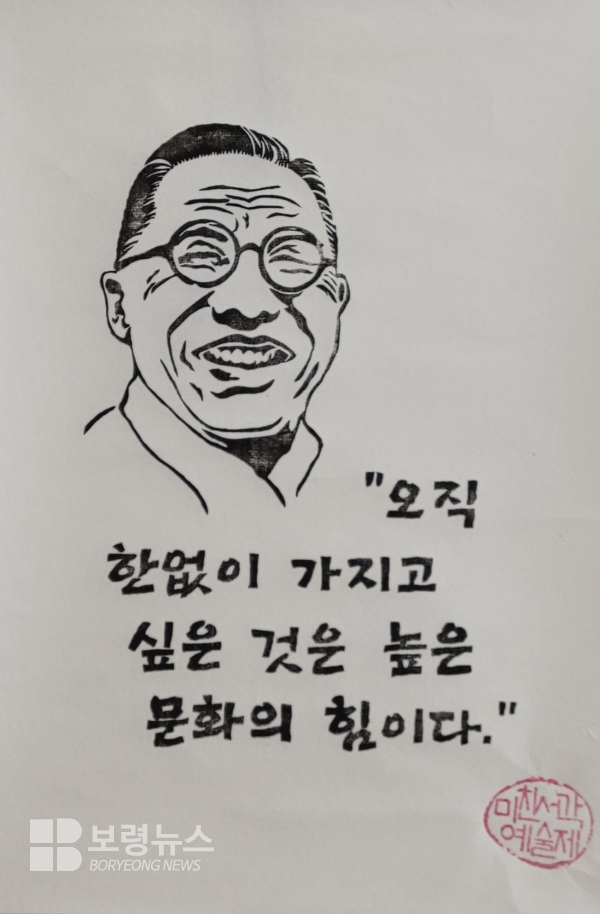 "오직
한없이 가지고
싶은 것은 높은
문화의 힘이다."
미친서각
예술제
보령뉴스
BORYEONG NEWS